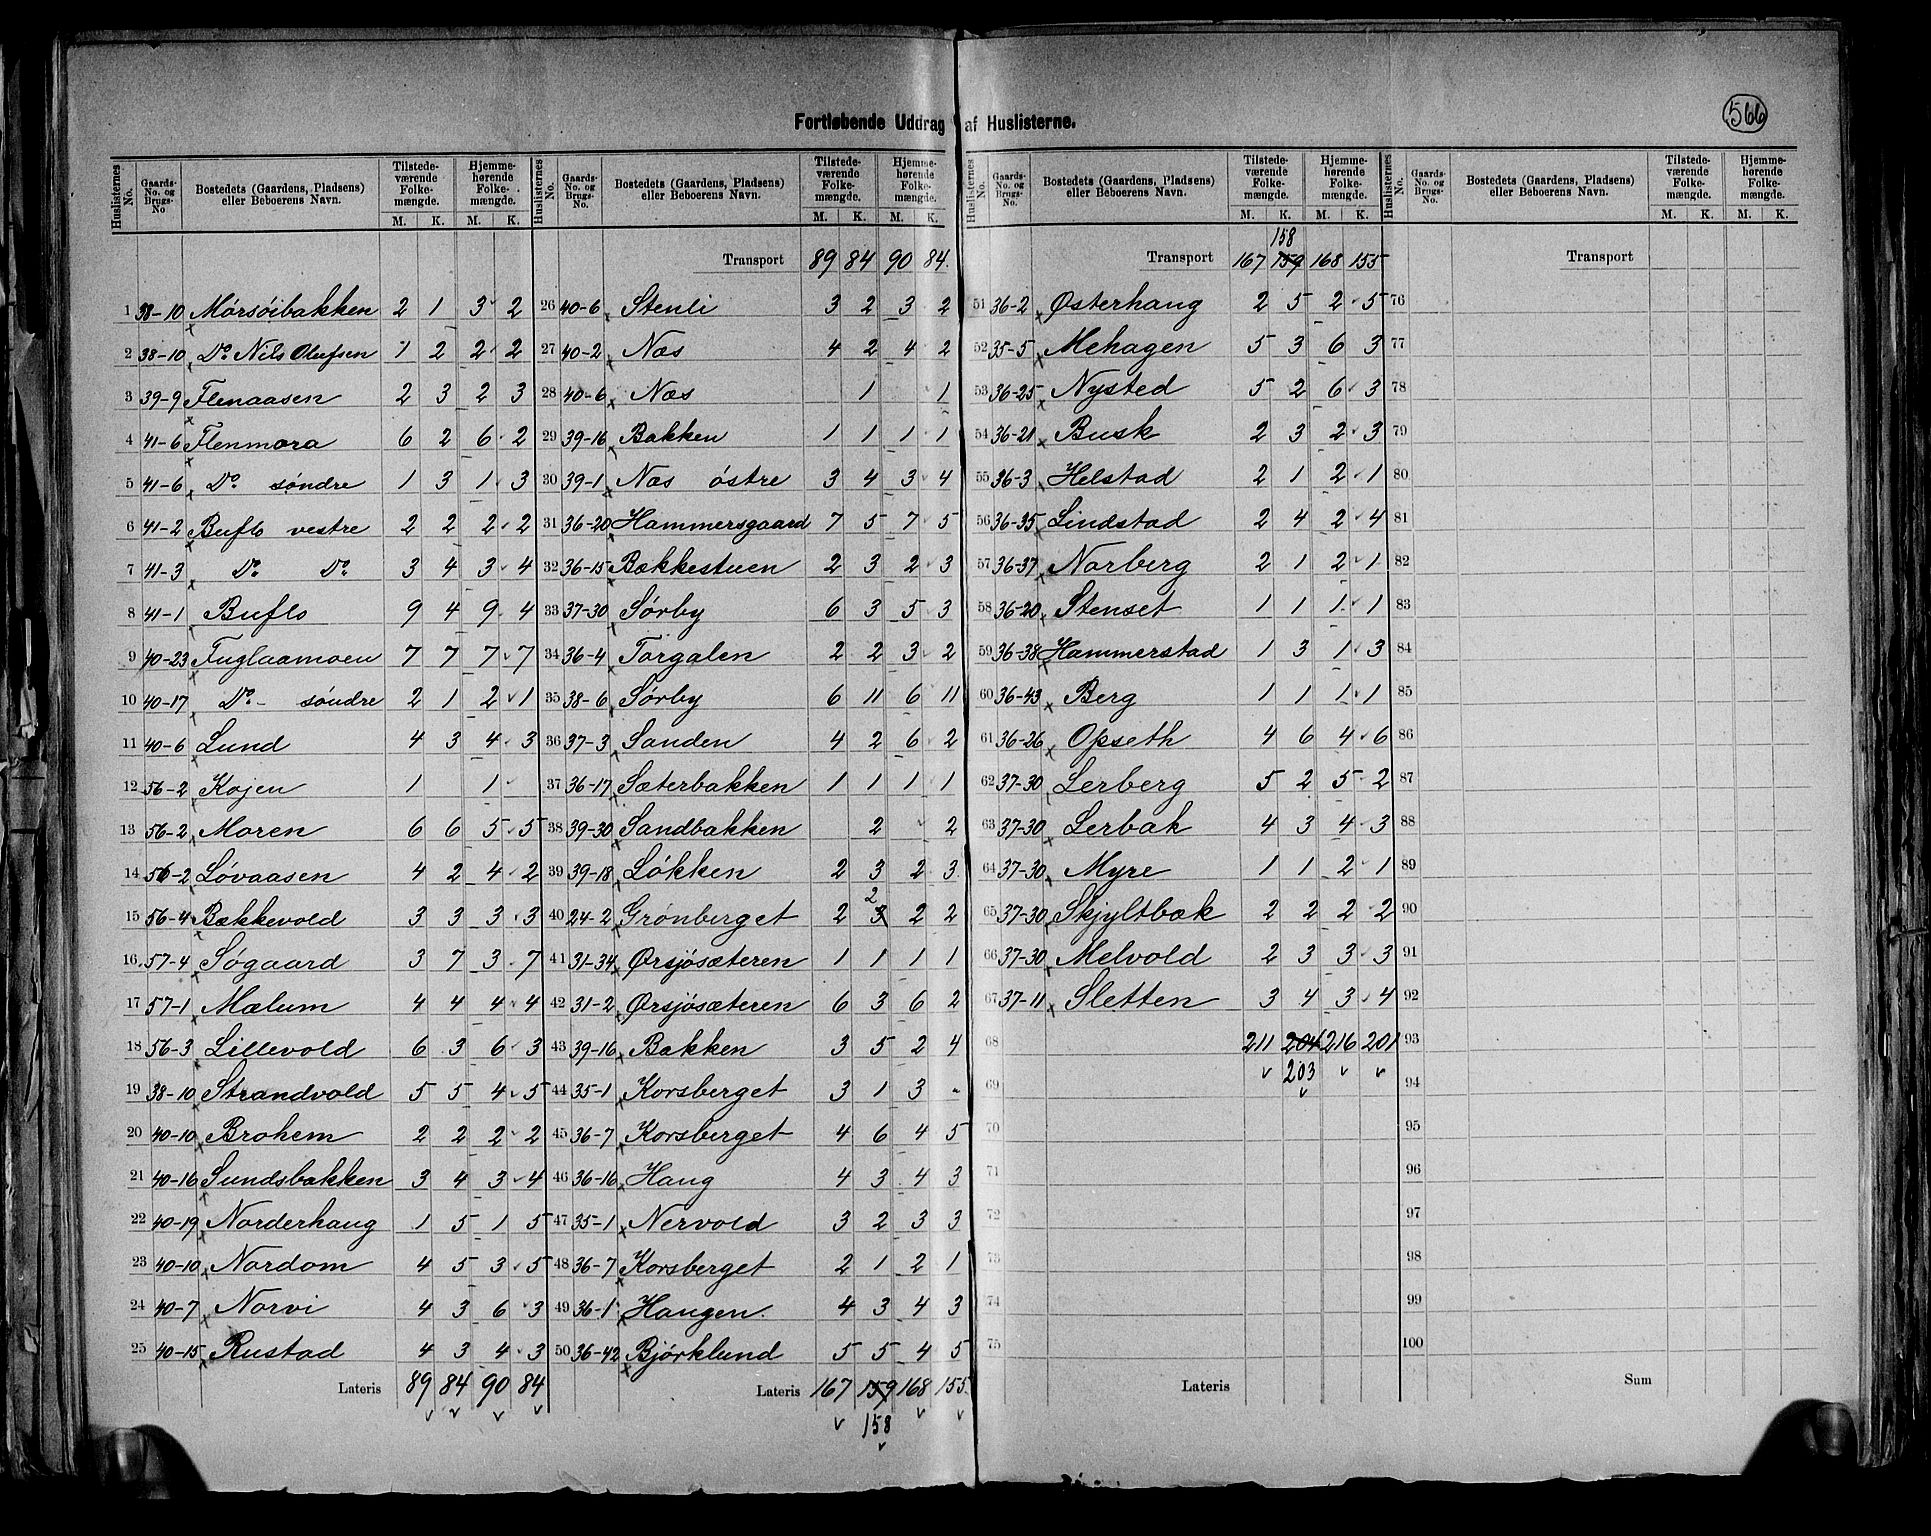 566
Fortløbende Uddrag af Huslisterne.
Huslisternes No. | Gaards-No. og Brugs-No | Bostedets (Gaardens, Pladsens) eller Beboerens Navn. | Tilstedeværende Folkemængde. M. K. | Hjemmehørende Folkemængde. M. K.
1 38-10 Mørsøibakken 2 1 3 2
2 38-10 Do Nils Olufsen 1 2 2 2
3 39-9 Flenaasen 2 3 2 3
4 41-6 Flenmora 6 2 6 2
5 41-6 Do søndre 1 3 1 3
6 41-2 Buflo vestre 2 2 2 2
7 41-3 Do Do 3 4 3 4
8 41-1 Buflo 9 4 9 4
9 40-23 Fuglaamoen 7 7 7 7
10 40-17 Do søndre 2 1 2 1
11 40-6 Lund 4 3 4 3
12 56-2 Kojen 1 1
13 56-2 Moren 6 6 5 5
14 56-2 Løvaasen 4 2 4 2
15 56-4 Bækkevold 3 3 3 3
16 57-4 Søgaard 3 7 3 7
17 57-1 Mælum 4 4 4 4
18 56-3 Lillevold 6 3 6 3
19 38-10 Strandvold 5 5 4 5
20 40-10 Brohem 2 2 2 2
21 40-16 Sundsbakken 3 4 3 4
22 40-19 Norderhaug 1 5 1 5
23 40-10 Nordom 4 5 3 5
24 40-7 Norvi 4 3 6 3
25 40-15 Rustad 4 3 4 3
Lateris 89 84 90 84
Huslisternes No. | Gaards-No. og Brugs-No. | Bostedets (Gaardens, Pladsens) eller Beboerens Navn. | Tilstedeværende Folkemængde. M. K. | Hjemmehørende Folkemængde. M. K.
Transport 89 84 90 84.
26 40-6 Stenli 3 2 3 2
27 40-2 Næs 4 2 4 2
28 40-6 Næs 1 1
29 39-16 Bakken 1 1 1 1
30 39-1 Næs østre 3 4 3 4
31 36-20 Hammersgaard 7 5 7 5
32 36-15 Bækkestuen 2 3 2 3
33 37-30 Sørby 6 3 5 3
34 36-4 Torgalen 2 2 3 2
35 38-6 Sørby 6 11 6 11
36 37-3 Sanden 4 2 6 2
37 36-17 Sæterbakken 1 1 1 1
38 39-30 Sandbakken 2 2
39 39-18 Løkken 2 3 2 3
40 24-2 Grønberget 2 3 2 2 2
41 31-34 Ørsjøsæteren 1 1 1 1
42 31-2 Ørsjøsæteren 6 3 6 2
43 39-16 Bakken 3 5 2 4
44 35-1 Korsberget 3 1 3 -
45 36-7 Korsberget 4 6 4 5
46 36-16 Haug 4 3 4 3
47 35-1 Nervold 3 2 3 3
48 36-7 Korsberget 2 1 2 1
49 36-1 Haugen. 4 3 4 3
50 36-42 Bjørklund 5 5 4 5
Lateris 167 159 168 155
158
Huslisternes No. | Gaards-No. og Brugs-No. | Bostedets (Gaardens, Pladsens) eller Beboerens Navn. | Tilstedeværende Folkemængde. M. K. | Hjemmehørende Folkemængde. M. K.
158
Transport 167 159 168 155
51 36-2 Østerhaug 2 5 2 5
52 35-5 Mehagen 5 3 6 3
53 36-25 Nysted 5 2 6 3
54 36-21 Busk 2 3 2 3
55 36-3 Helstad 2 1 2 1
56 36-35 Lindstad 2 4 2 4
57 36-37 Norberg 2 1 2 1
58 36-20 Stenset 1 1 1 1
59 36-38 Hammerstad 1 3 1 3
60 36-43 Berg 1 1 1 1
61 36-26 Opseth 4 6 4 6
62 37-30 Lerberg 5 2 5 2
63 37-30 Lerbak 4 3 4 3
64 37-30 Myre 1 1 2 1
65 37-30 Skjyltbæk 2 2 2 2
66 37-30 Melvold 2 3 3 3
67 37-11 Sletten 3 4 3 4
68 211 204 216 201
69 203
70
71
72
73
74
75
Lateris
Huslisternes No. | Gaards-No. og Brugs-No. | Bostedets (Gaardens, Pladsens) eller Beboerens Navn. | Tilstedeværende Folkemængde. M. K. | Hjemmehørende Folkemængde. M. K.
Transport
76
77
78
79
80
81
82
83
84
85
86
87
88
89
90
91
92
93
94
95
96
97
98
99
100
Sum